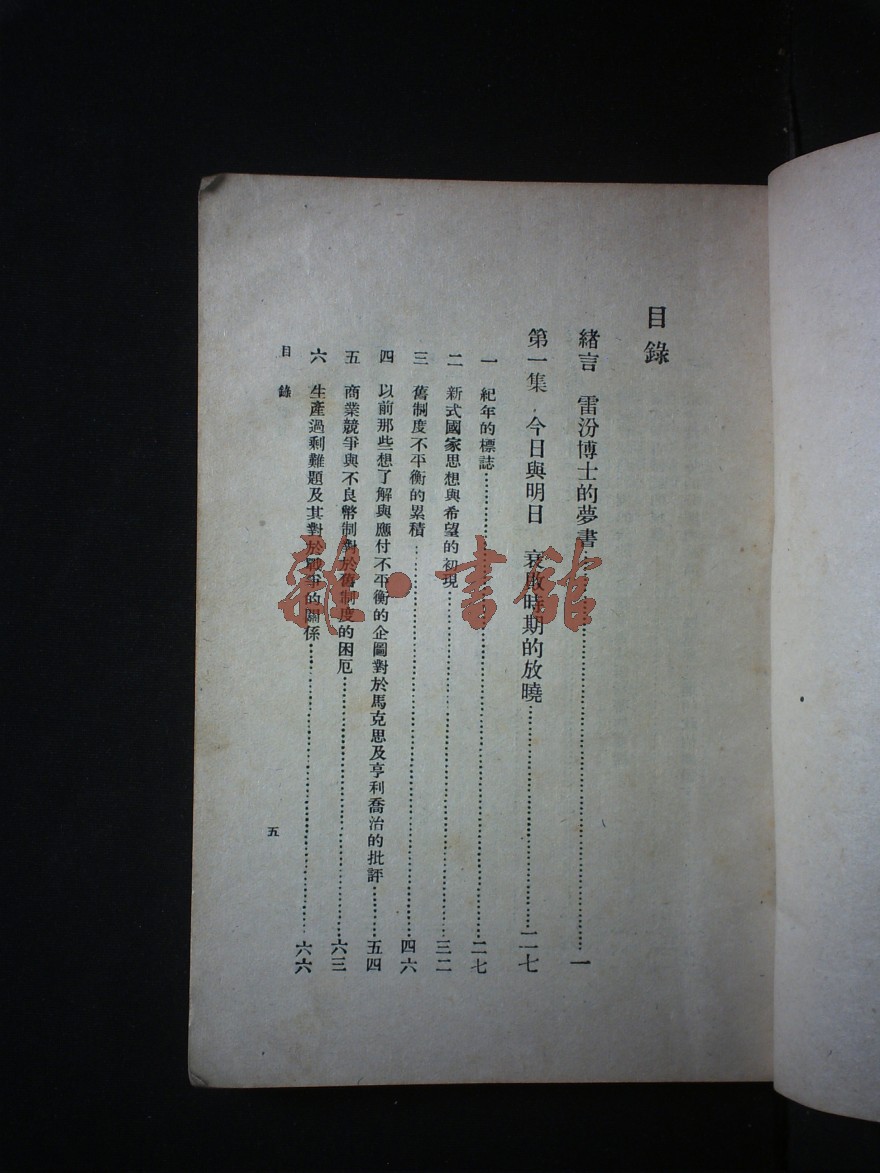 目錄
緒言　雷汾博士的夢書……一
第一集　今日與明日　衰敗時期的放曉……二七
一　紀年的標誌……二七
二　新式國家思想與希望的初現……三二
三　舊制度不平衡的累積……四六
四　以前那些想了解與應付不平衡的企圖對於馬克思及亨利喬治的批評……五四
五　商業競爭與不良幣制對於舊制度的困厄……六三
六　生產過剩難題及其對於戰爭的關係……六六
目錄
五
龍·書館